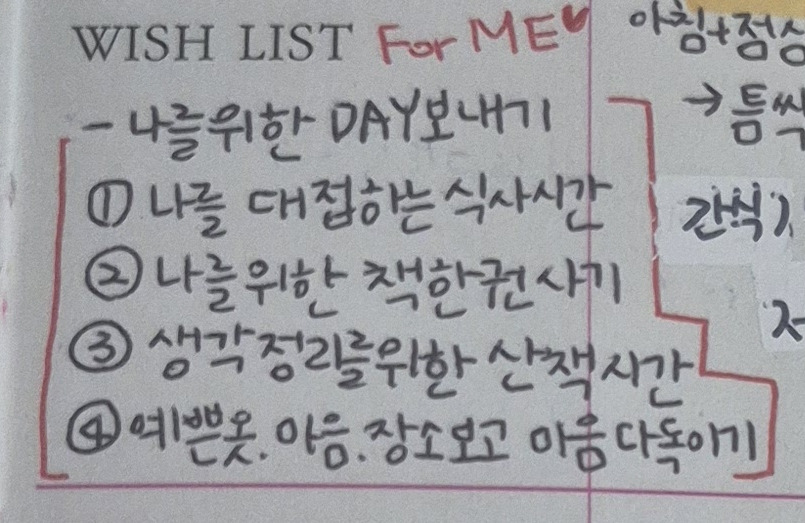 WISH LIST For ME♥
- 나를위한 DAY보내기
① 나를 대접하는 식사시간
② 나를위한 책한권사기
③ 생각정리를위한 산책시간
④ 예쁜옷.마음.장소보고 마음다독이기
아침+점심
→ 틈싹
간식